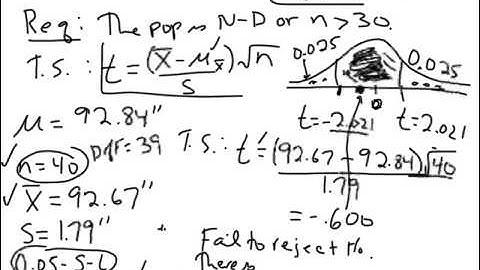 Req: The pop is N-D or n > 30.
T.S.: t = (x̄ - μx̄)√n / S
0.025 0.025
0
t = -2.021 t = 2.021
μ = 92.84"
✓ n = 40 Diff = 39
T.S.: t = (92.67 - 92.84)√40 / 1.79
✓ x̄ = 92.67"
= -.600
S = 1.79"
Fail to reject H₀.
0.05 - S - L
There is